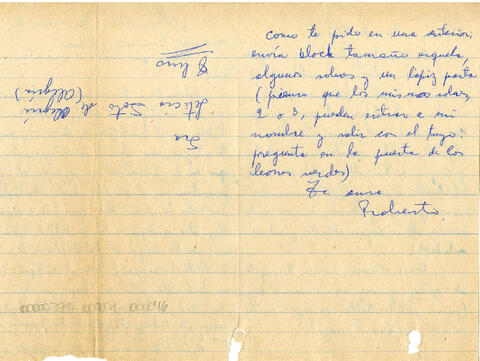 como te pido en una anterior:
envía block tamaño esquela,
algunos sobres y un lápiz pasta
(pienso que los mismos sobres,
2 o 3, pueden entrar a mi
nombre y salir con el tuyo:
pregunta en la puerta de los
leones verdes)
Te ama
Roberto.
Sra
Leticia Soto de Alegría
(Alegría)